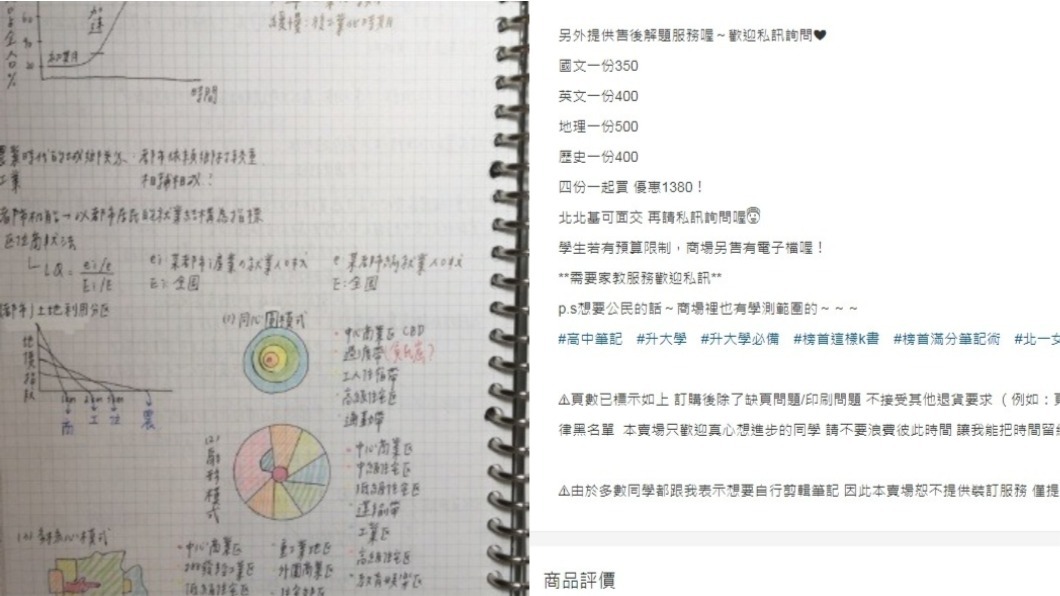 時間
相輔相成！
都市機能→以都市居民的就業結構為指標
區位商數法
LQ = ei/e
Ei/E
ei：某都市i產業的就業人口數
e：某都市總就業人口數
Ei：全國
E：全國
土地利用分區
(1)同心圓模式
中心商業區 CBD
過渡帶(貧民窟?)
工人住宅帶
高級住宅區
通勤帶
地價指數
商
工
住
農
(2)扇形模式
中心商業區
中級住宅區
低級住宅區
運輸帶
工業區
高級住宅區
教育娛樂區
(3)多核心模式
中心商業區
重工業地區
外圍商業區
低級住宅區
另外提供售後解題服務喔～歡迎私訊詢問❤
國文一份350
英文一份400
地理一份500
歷史一份400
四份一起買 優惠1380！
北北基可面交 再請私訊詢問喔
學生若有預算限制，商場另售有電子檔喔！
**需要家教服務歡迎私訊**
p.s想要公民的話～商場裡也有學測範圍的～～～
#高中筆記 #升大學 #升大學必備 #榜首這樣k書 #榜首滿分筆記術 #北一女
⚠頁數已標示如上 訂購後除了缺頁問題/印刷問題 不接受其他退貨要求（例如：
律黑名單 本賣場只歡迎真心想進步的同學 請不要浪費彼此時間 讓我能把時間留
⚠由於多數同學都跟我表示想要自行剪輯筆記 因此本賣場恕不提供裝訂服務 僅提
商品評價